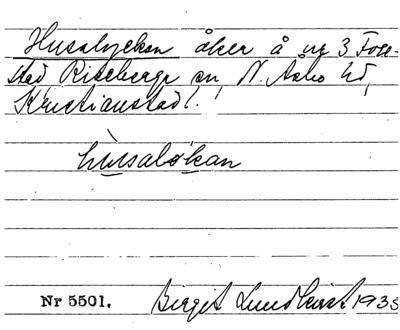 Husalyckan åker å nr 3 Fors-
stad, Riseberga sn, N. Åsbo hd,
Kristianstad l.
husalökan
Nr 5501. Birgit Lundkvist 1933